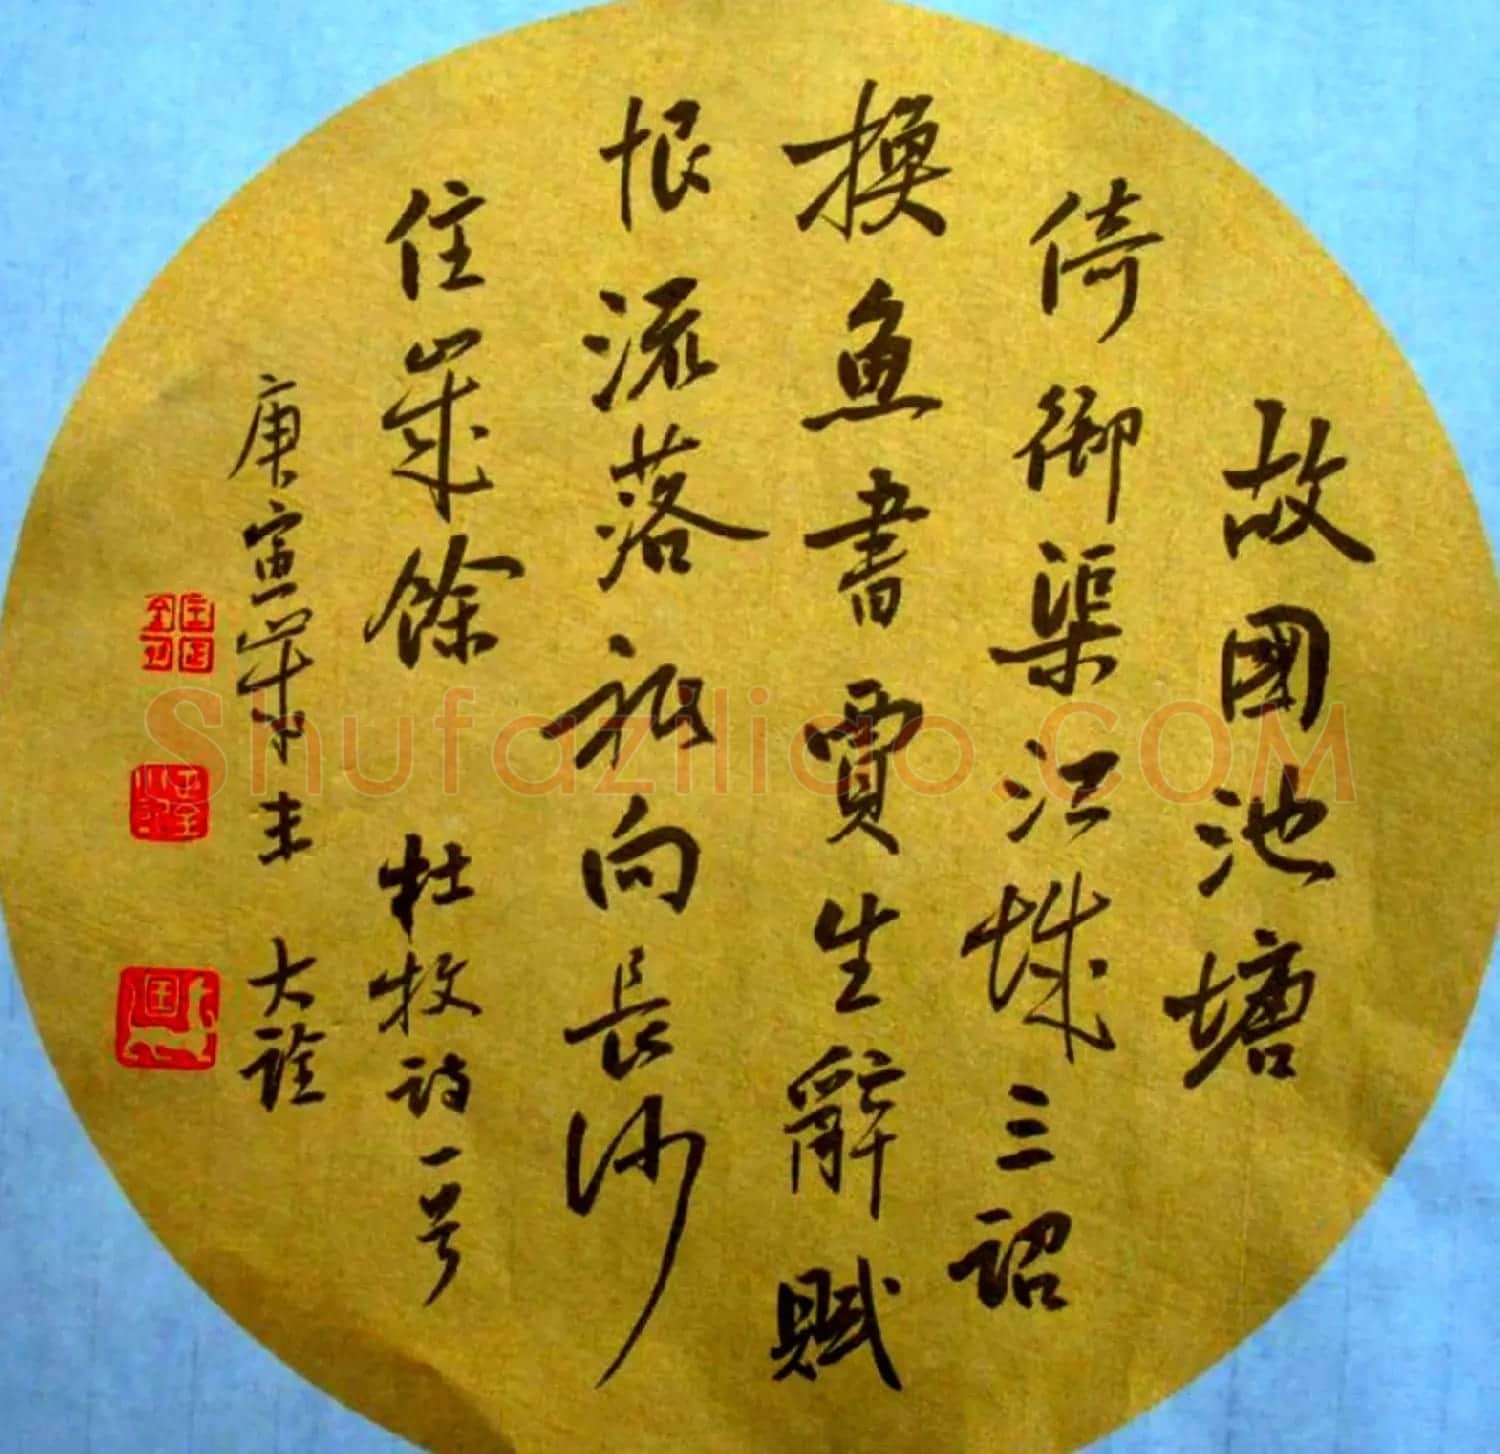 故國池塘
倚御渠江城三詔
換魚書賈生辭賦
恨流落祇向長沙
住歲餘 杜牧詩一号
庚寅年末 大詮
Shufaziliao.COM